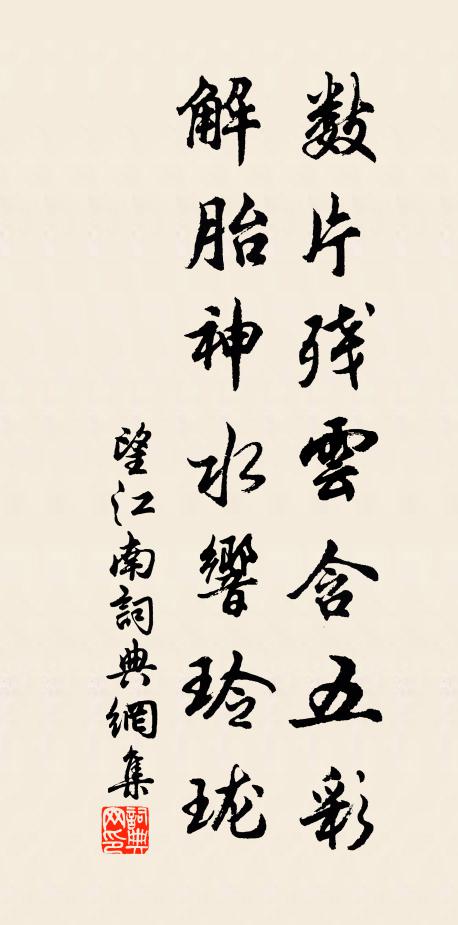 数片残雲含五彩
解胎神水響玲珑
望江南詞典網集
詞典
网印